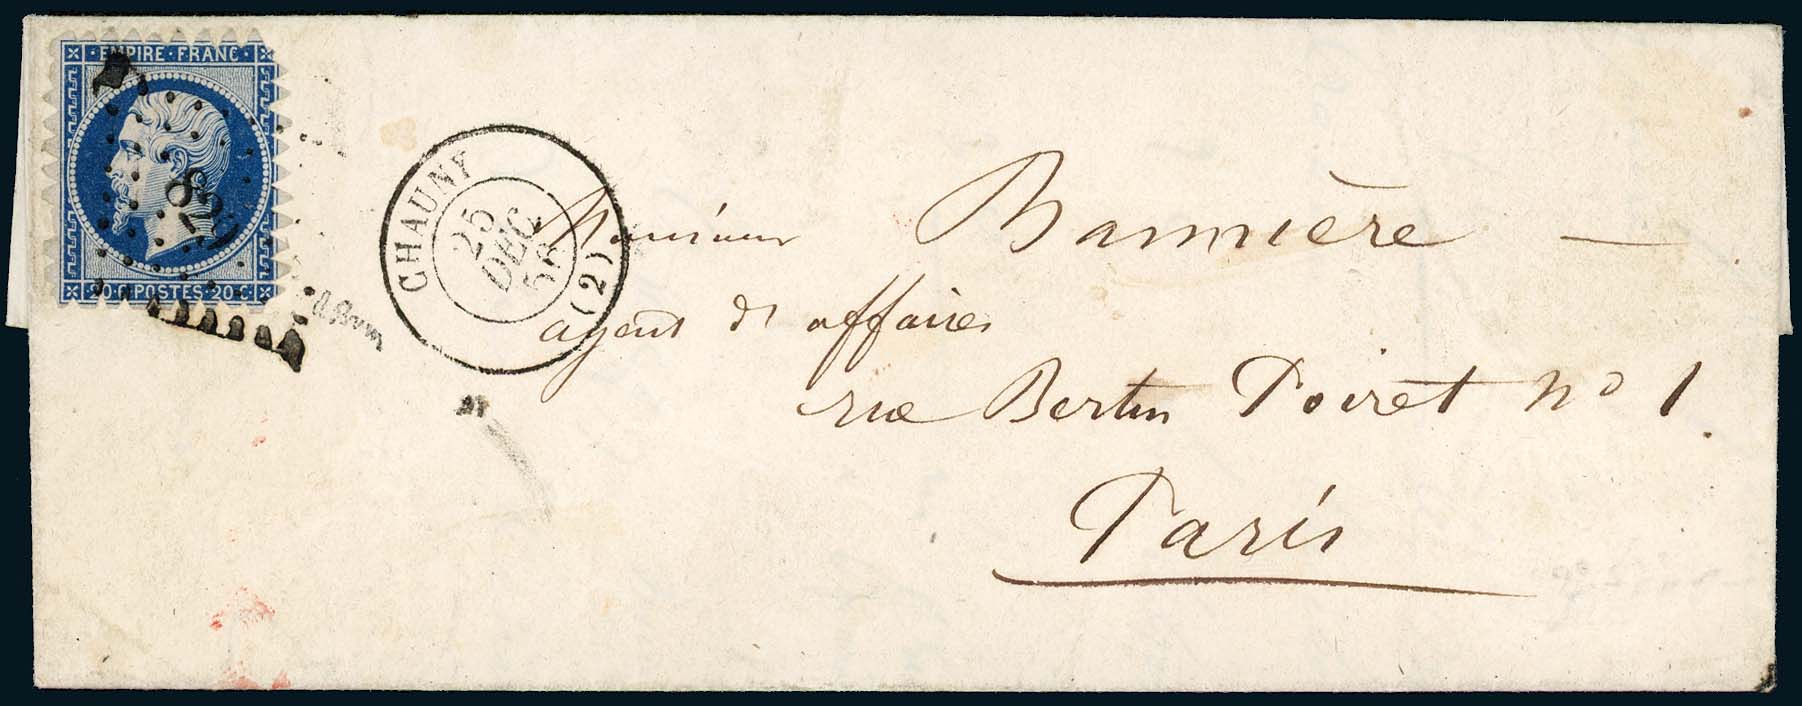 EMPIRE·FRANC·
20·C·POSTES·20·C·
CHAUNY
25
DEC
(2)
Monsieur Bannière —
agent d'affaires
rue Bertin Poiret nº 1
Paris